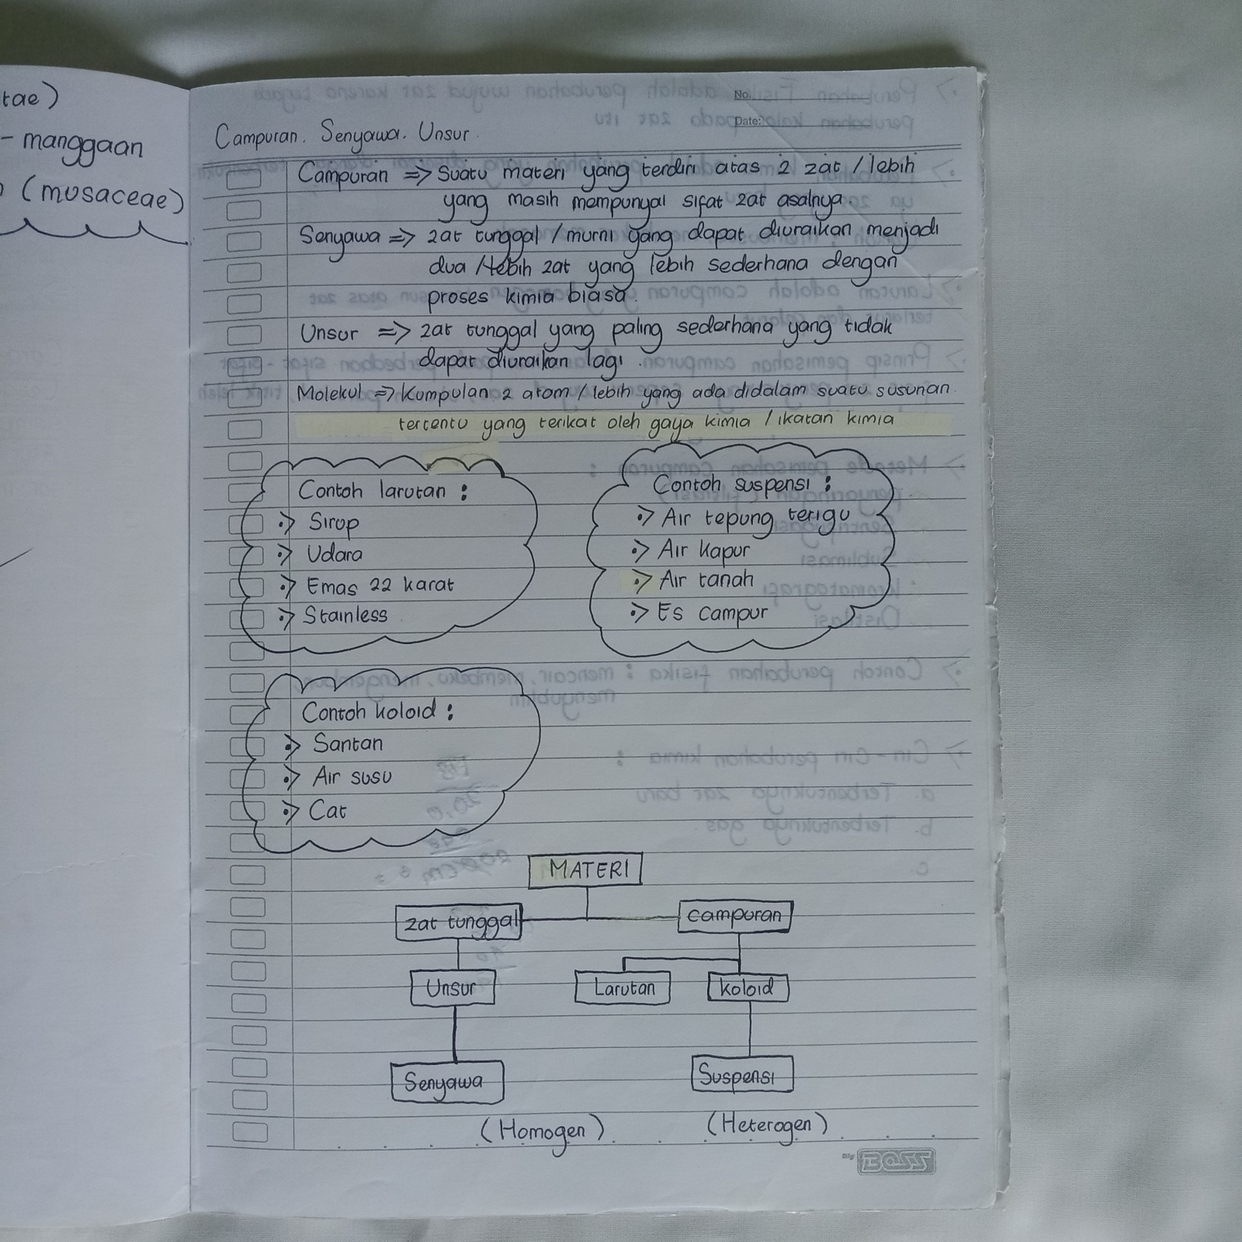 tae)
- manggaan
(musaceae)
No.
Date:
Campuran. Senyawa. Unsur.
Campuran => Suatu materi yang terdiri atas 2 zat / lebih
yang masih mempunyai sifat zat asalnya.
Senyawa => zat tunggal / murni yang dapat diuraikan menjadi
dua / lebih zat yang lebih sederhana dengan
proses kimia biasa.
Unsur => zat tunggal yang paling sederhana yang tidak
dapat diuraikan lagi.
Molekul => Kumpulan 2 atom / lebih yang ada didalam suatu susunan
tertentu yang terikat oleh gaya kimia / ikatan kimia
Contoh larutan :
Sirop
Udara
Emas 22 karat
Stainless
Contoh suspensi :
Air tepung terigu
Air kapur
Air tanah
Es campur
Contoh koloid :
Santan
Air susu
Cat
MATERI
zat tunggal
campuran
Unsur
Larutan
koloid
Senyawa
Suspensi
(Homogen)
(Heterogen)
Big BOSS